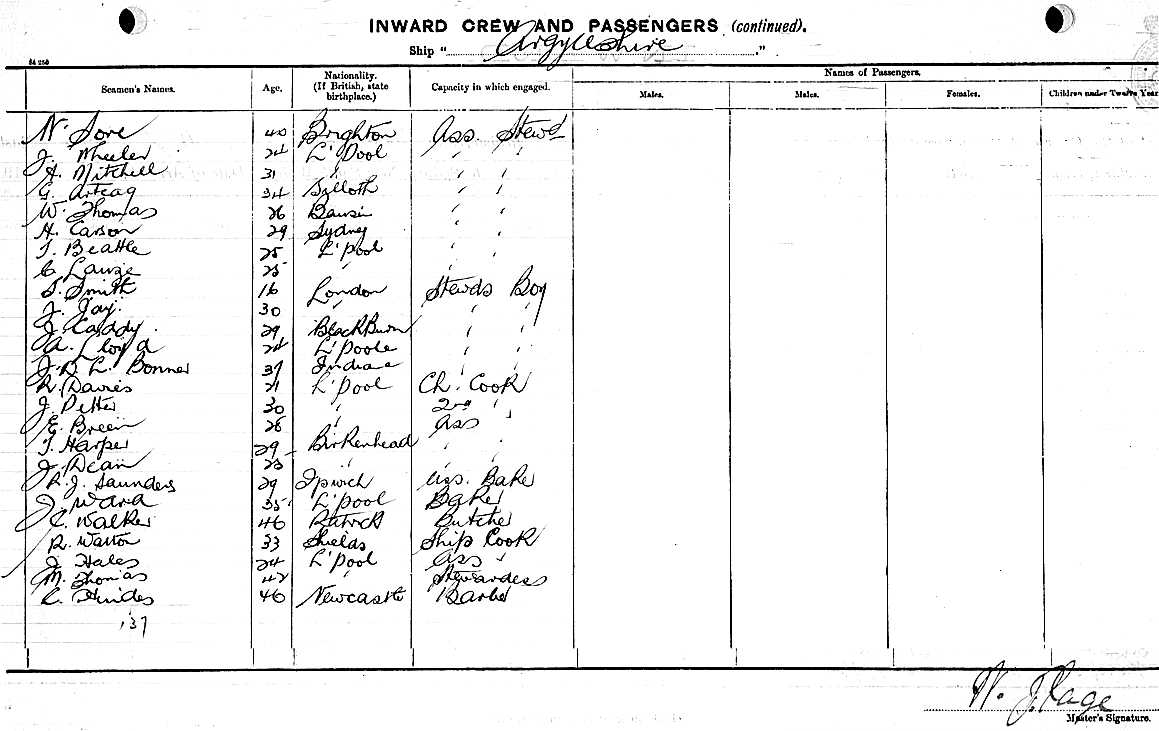 INWARD CREW AND PASSENGERS (continued).
Ship "Argyllshire."
Seamen's Names. Age. Nationality. (If British, state birthplace.) Capacity in which engaged. Names of Passengers.
Males. Males. Females. Children under Twelve Year
N. Sore 40 Brighton Ass. Stewd
J. Wheeler 24 L'Pool " "
A. Mitchell 31 " " "
G. 34 Silloth " "
W. Thomas 26 " "
H. Carson 29 Sydney " "
T. Beattie 25 L'pool " "
C. 25 "
S. Smith 16 London Stewds Boy
J. Jay. 30 " " "
J. Caddy. 29 BlackBurn " "
A. Lloyd 24 L'poole " "
J.D.L. Bonner 37 " "
R. Davies 21 L'pool Ch. Cook
J. Petter 30 " 2nd "
E. Breen 26 " Ass "
T. Harper 29 Birkenhead " "
J. Dean 23 "
R.J. Saunders 29 Ipwich Ass. Baker
J Ward 35 L'pool Baker
C. Walker 46 Butcher
R. Watton 33 Shields Ship Cook
J. Hales 24 L'pool Ass "
M. Thomas 42 " Stewardess
C. 46 Newcastle Barber
137
W. J. Page
Master's Signature.